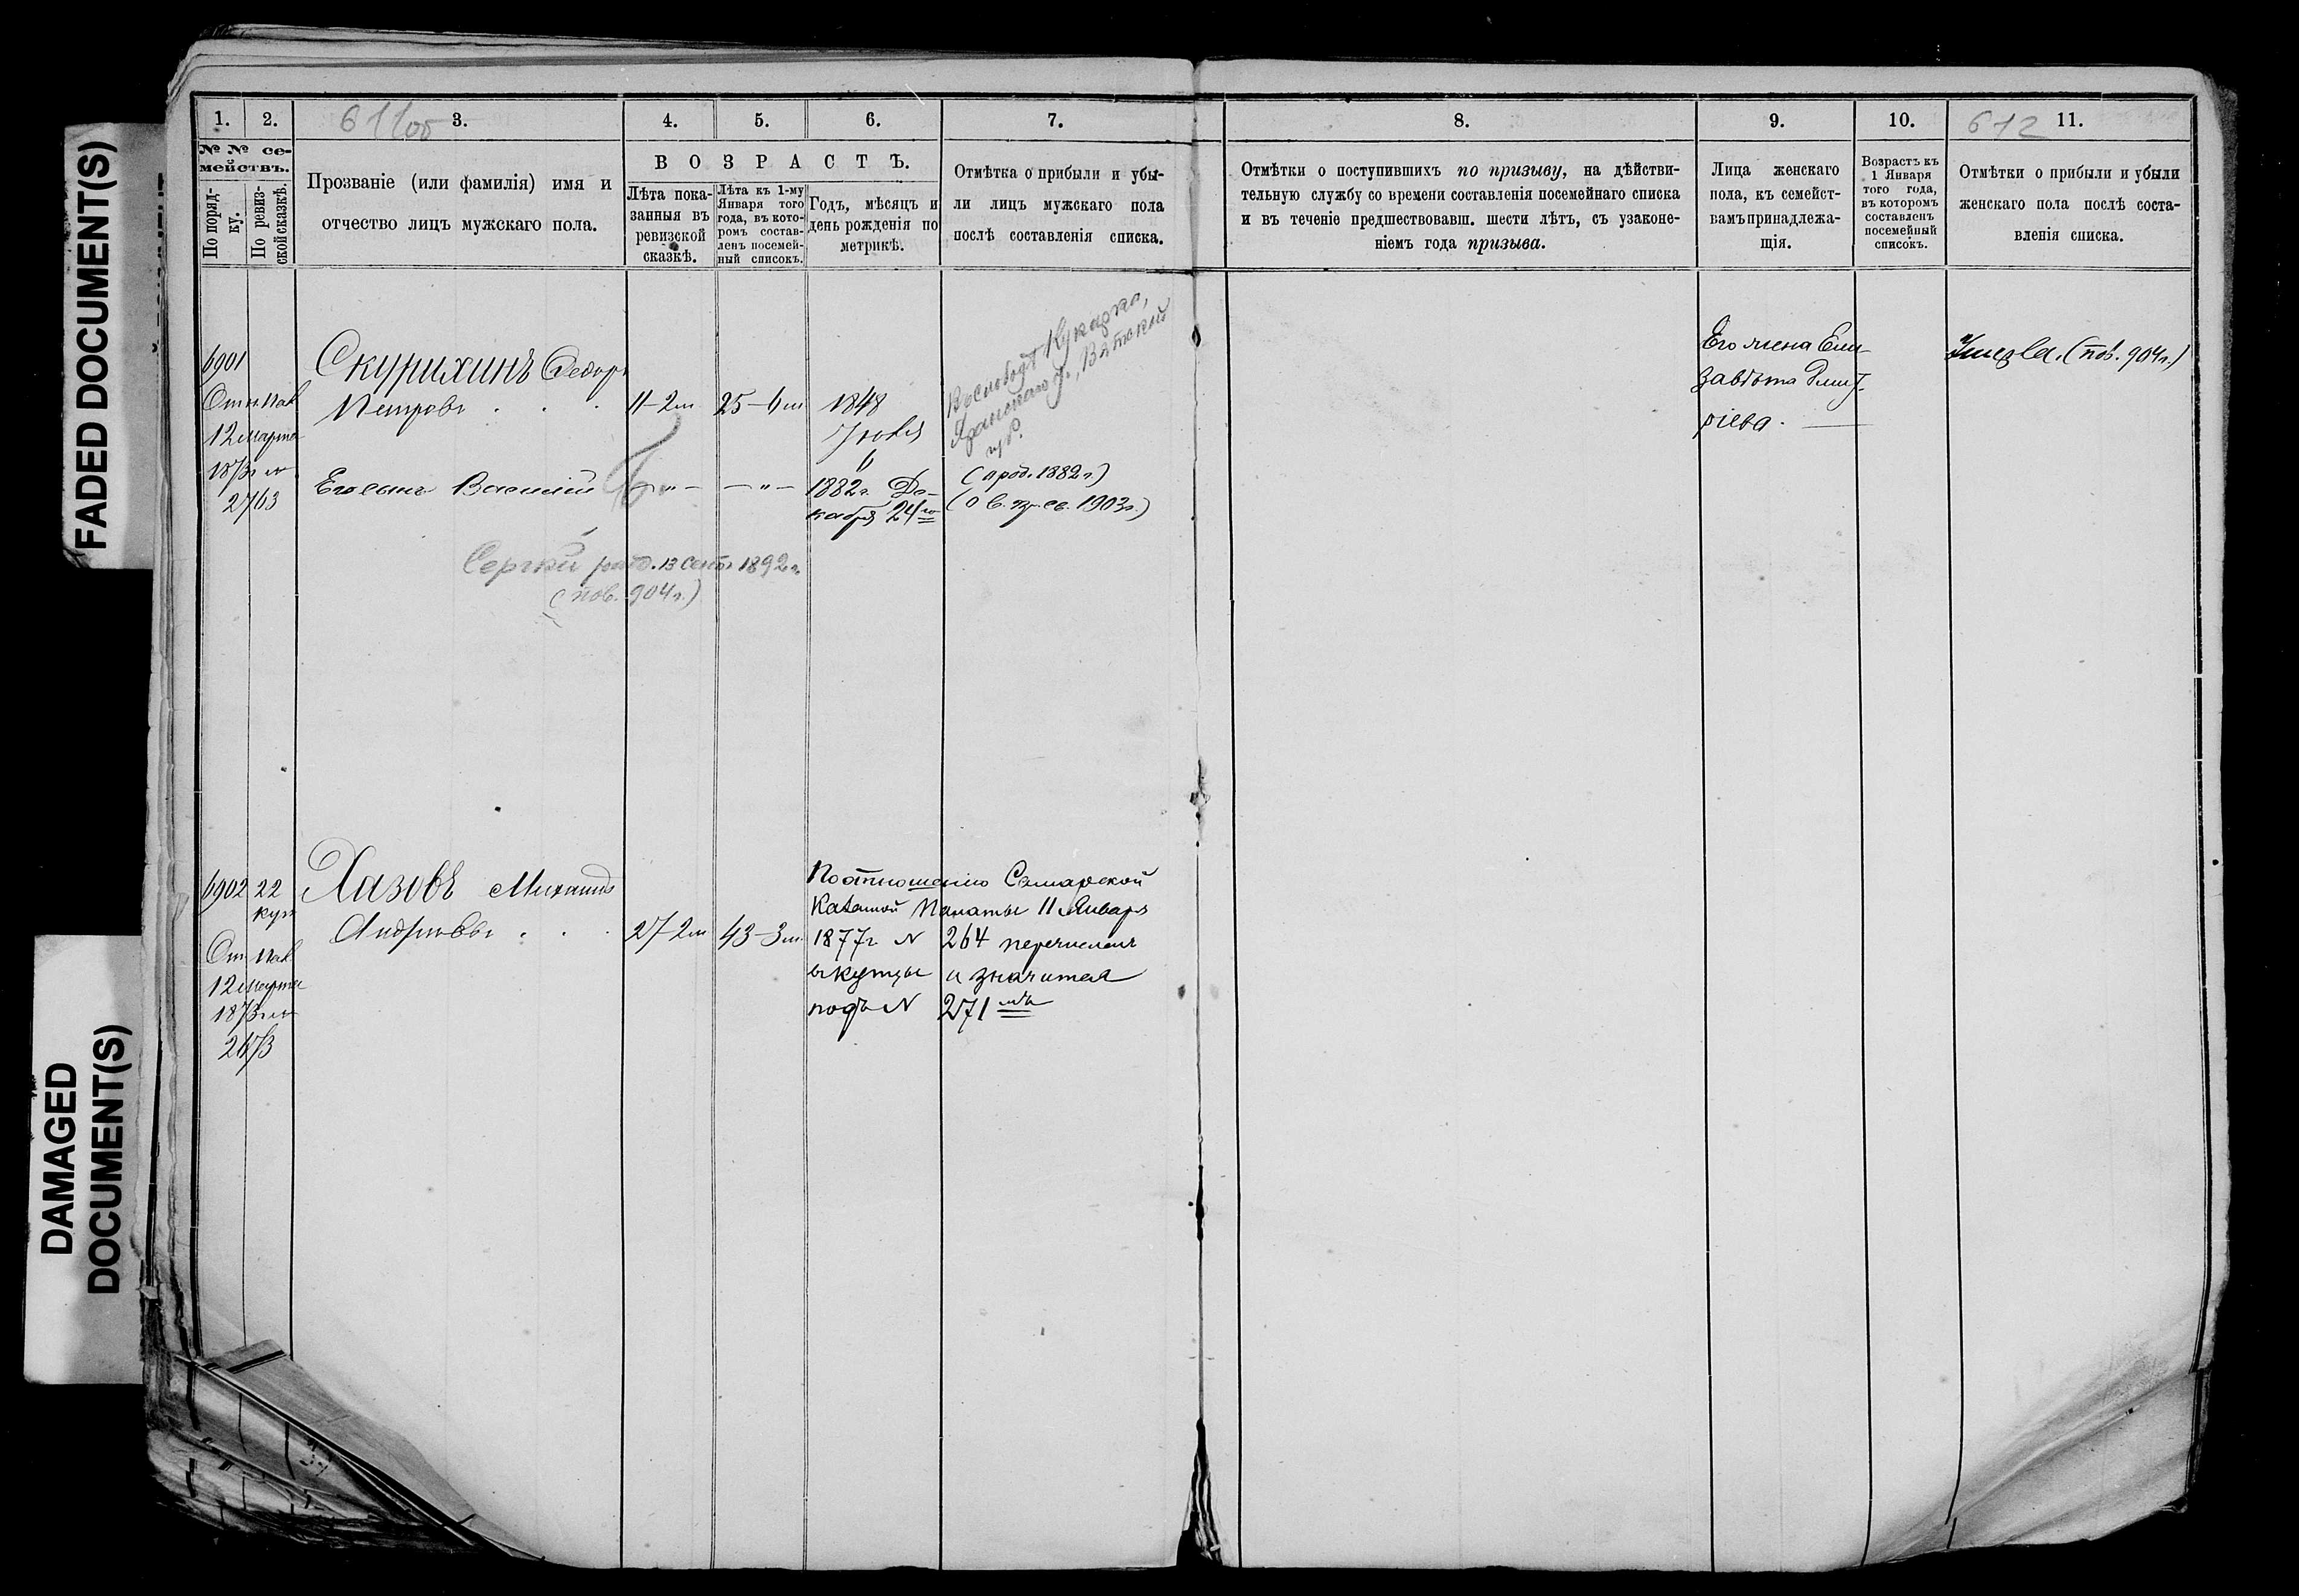 FADED DOCUMENT(S)
DAMAGED
DOCUMENT(S)
1.
2.
3.
4.
5.
6.
7.
8.
9.
10.
11.
612
№ № се-
мействъ.
По поряд-
ку.
По ревиз-
ской сказкѣ.
Прозваніе (или фамилія) имя и
отчество лицъ мужскаго пола.
ВОЗРАСТЪ.
Лѣта пока-
занныя въ
ревизской
сказкѣ.
Лѣта къ 1-му
Января того
года, въ кото-
ромъ состав-
ленъ посемей-
ный списокъ.
Годъ, мѣсяцъ и
день рожденія по
метрикѣ.
Отмѣтка о прибыли и убы-
ли лицъ мужскаго пола
послѣ составленія списка.
Отмѣтки о поступившихъ по призыву, на дѣйстви-
тельную службу со времени составленія посемейнаго списка
и въ теченіе предшествовавш. шести лѣтъ, съ узаконе-
ніемъ года призыва.
Лица женскаго
пола, къ семейст-
вамъ принадлежа-
щія.
Возрастъ къ
1 Января
того года,
въ которомъ
составленъ
посемейный
списокъ.
Отмѣтки о прибыли и убыли
женскаго пола послѣ соста-
вленія списка.
6901
12 марта
1873г №
2763
Скурихинъ Федоръ
Петровъ . . .
11-2м
25-6м
1848
Іюля
6
Въ слободѣ Кукарка,
Яранскаго у., Вятской
Его жена Ели-
завѣта Дмит-
ріева.
Умерла. (пов. 904г.)
Его сынъ Василій
— " —
— " —
1882г. Де-
кабря 24го
(прод. 1882г.)
1903г.)
Сергѣй рожд. 13 сент. 1892г.
(пов. 904г.)
6902
22
куп
12 марта
1873г №
Хазовъ Михаилъ
Андреевъ . . .
27-2м
43-3м
По отношенію Самарской
Казенной Палаты 11 Января
1877г № 264 перечисленъ
въ купцы и значится
подъ № 271мъ